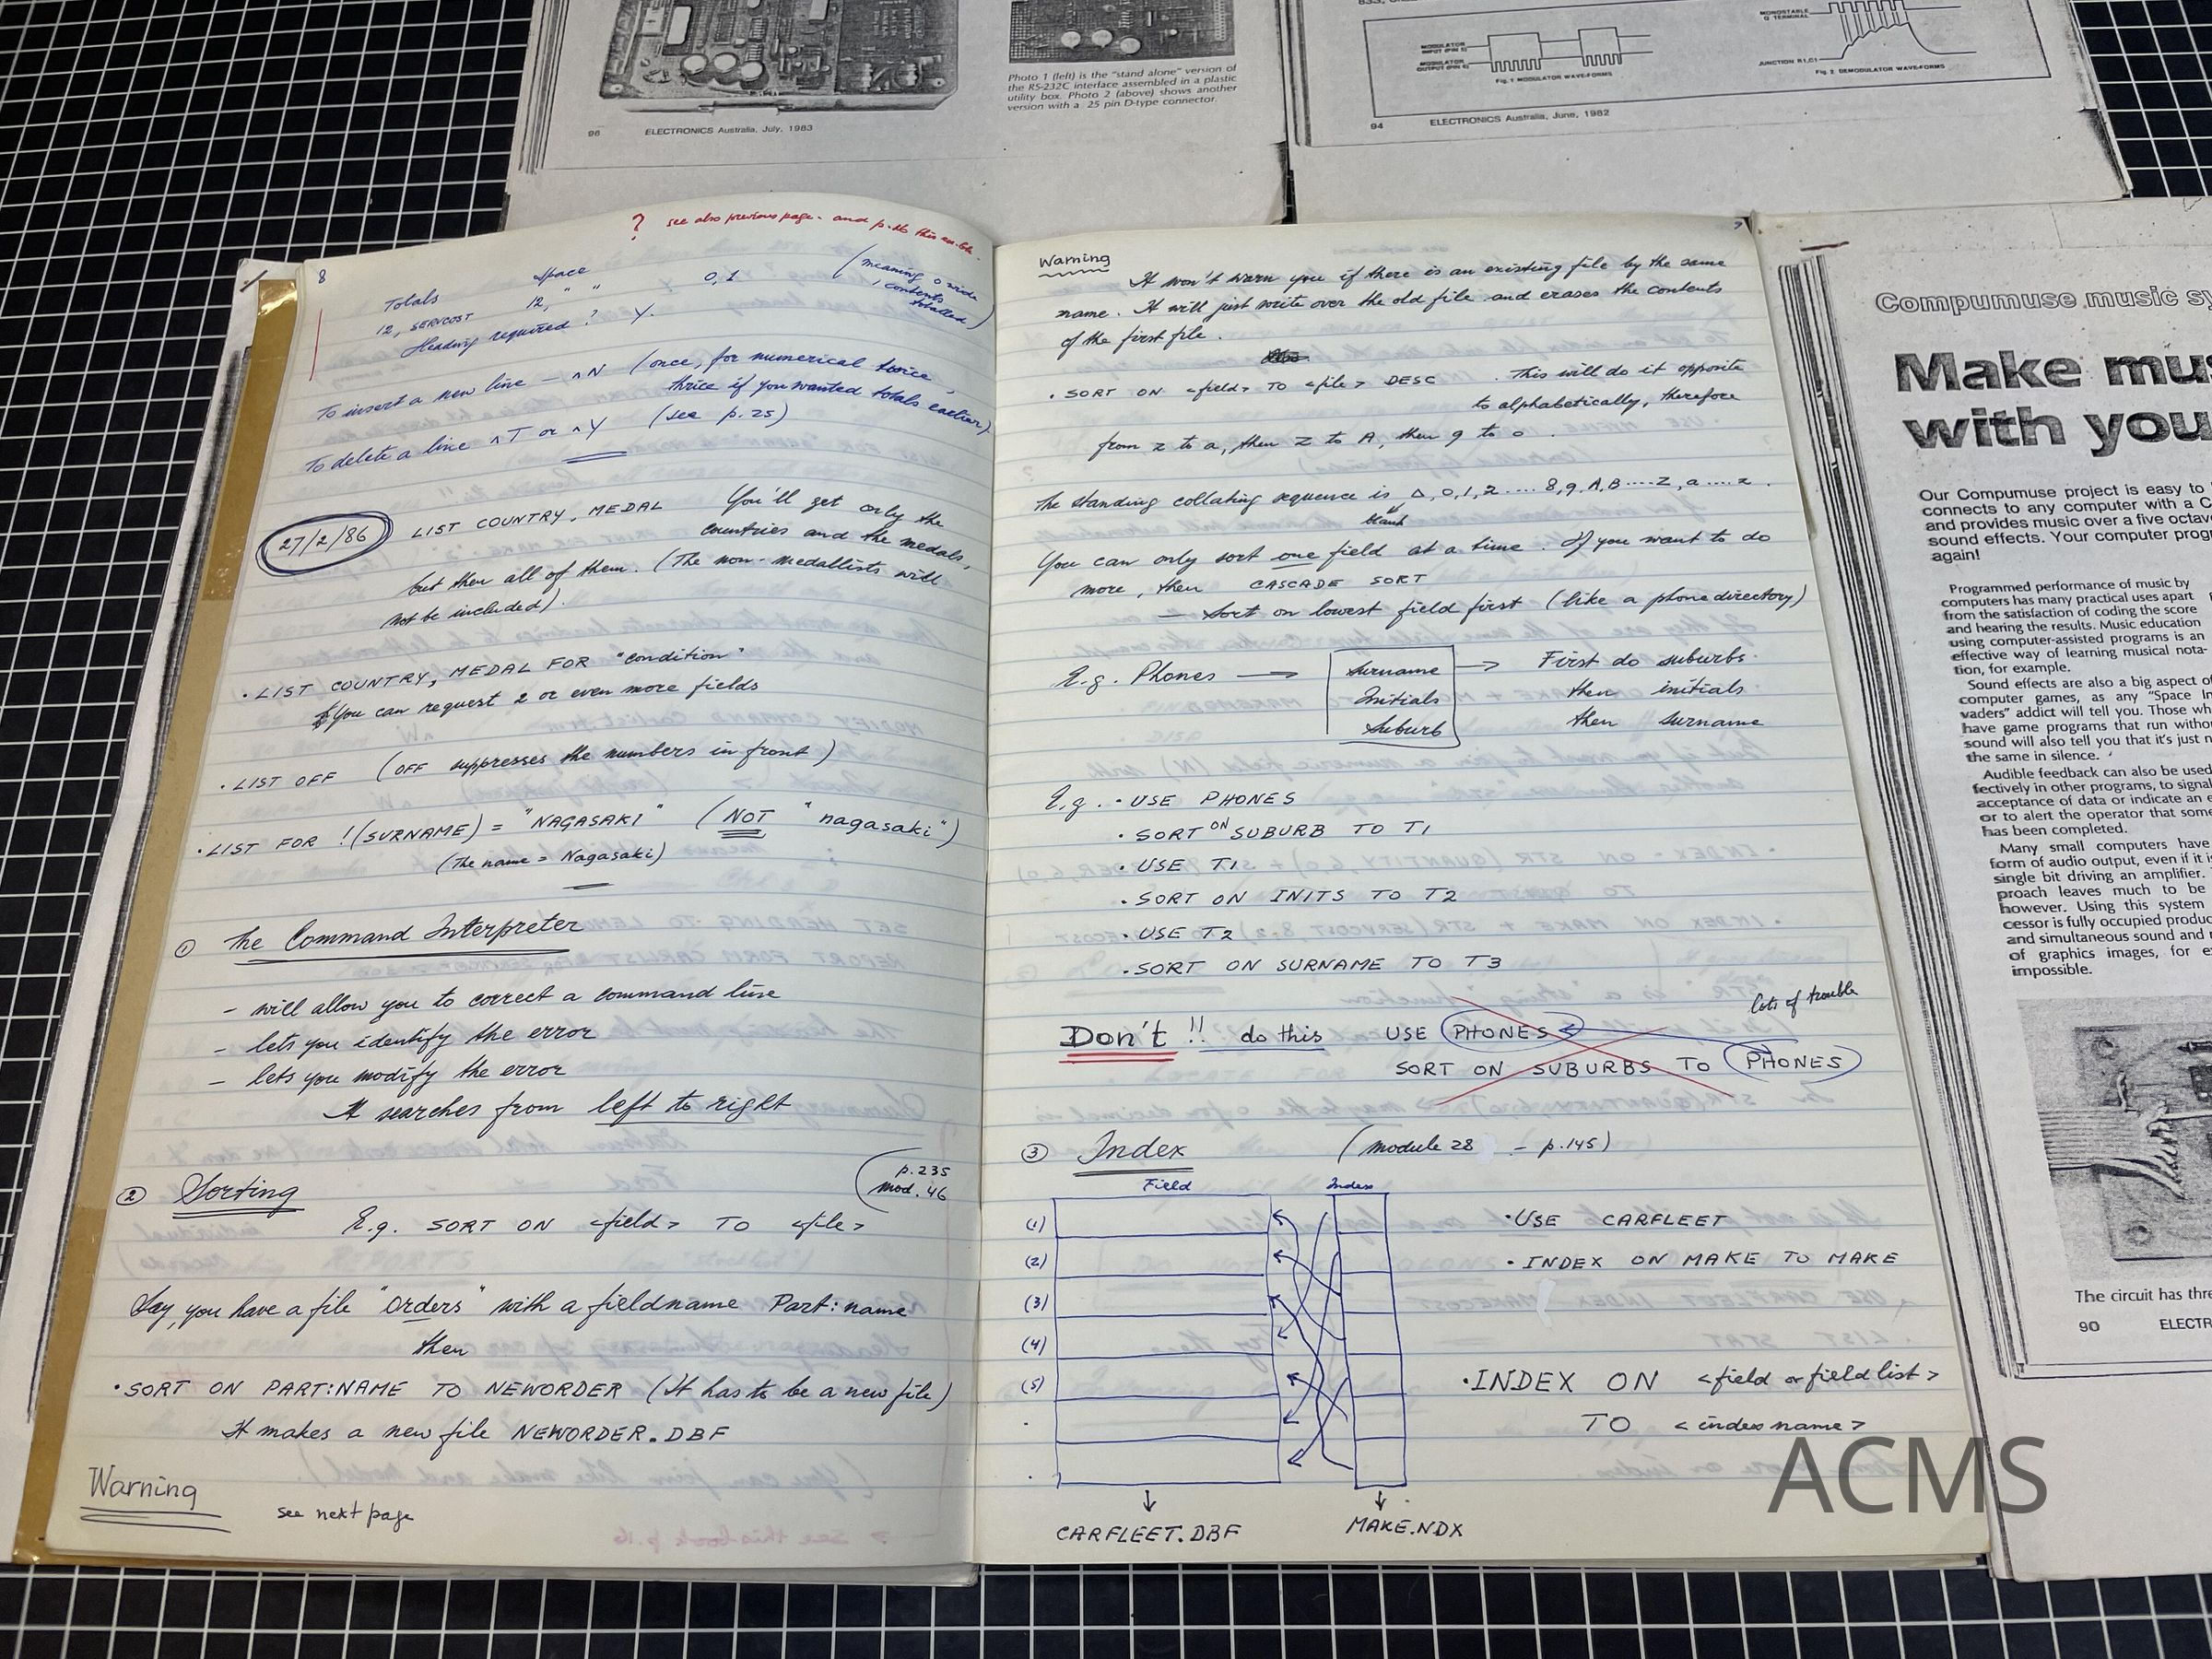 Photo 1 (left) is the "stand alone" version of
the RS-232C interface assembled in a plastic
utility box. Photo 2 (above) shows another
version with a 25 pin D-type connector.
96 ELECTRONICS Australia, July, 1983
MODULATOR
INPUT (PIN 5)
MODULATOR
OUTPUT (PIN 6)
Fig. 1 MODULATOR WAVE-FORMS
MONOSTABLE
Q TERMINAL
JUNCTION R1,C1
Fig. 2 DEMODULATOR WAVE-FORMS
94 ELECTRONICS Australia, June, 1982
? see also previous page. and p.26 this
8
Totals Space 0,1 (meaning 0 wide
12, SERVCOST 12, " " , contents
totalled)
Heading required? Y.
To insert a new line - ^N (once, for numerical twice,
thrice if you wanted totals earlier)
To delete a line ^T or ^Y (see p.25)
27/2/86 LIST COUNTRY, MEDAL You'll get only the
countries and the medals,
but then all of them. (The non-medallists will
not be included).
• LIST COUNTRY, MEDAL FOR "condition"
You can request 2 or even more fields
• LIST OFF (OFF suppresses the numbers in front)
• LIST FOR !(SURNAME) = "NAGASAKI" (NOT "nagasaki")
(The name = Nagasaki)
① The Command Interpreter
- will allow you to correct a command line
- lets you identify the error
- lets you modify the error
It searches from left to right
② Sorting (p.235
mod. 46
E.g. SORT ON <field> TO <file>
Say, you have a file "Orders" with a fieldname Part:name
then
• SORT ON PART:NAME TO NEWORDER (It has to be a new file)
It makes a new file NEWORDER.DBF
Warning
see next page
Warning
It won't warn you if there is an existing file by the same
name. It will just write over the old file and erases the contents
of the first file.
• SORT ON <field> TO <file> DESC . This will do it opposite
to alphabetically, therefore
from z to a, then Z to A, then 9 to 0 .
The standing collating sequence is Δ,0,1,2....8,9,A,B....Z,a....z.
blank
You can only sort one field at a time. If you want to do
more, then CASCADE SORT
- Sort on lowest field first (like a phone directory)
E.g. Phones → Surname → First do suburbs.
Initials then initials
Suburb then surname
E.g. • USE PHONES
• SORT ON SUBURB TO T1
• USE T1
• SORT ON INITS TO T2
• USE T2
• SORT ON SURNAME TO T3
lots of trouble
Don't !! do this USE PHONES
SORT ON SUBURBS TO PHONES
③ Index (module 28 - p.145)
Field Index
(1)
(2)
(3)
(4)
(5)
• USE CARFLEET
• INDEX ON MAKE TO MAKE
• INDEX ON <field or field list>
TO <index name>
CARFLEET.DBF MAKE.NDX
Compumuse music sy
Make mus
with you
Our Compumuse project is easy to
connects to any computer with a C
and provides music over a five octav
sound effects. Your computer prog
again!
Programmed performance of music by
computers has many practical uses apart
from the satisfaction of coding the score
and hearing the results. Music education
using computer-assisted programs is an
effective way of learning musical nota-
tion, for example.
Sound effects are also a big aspect of
computer games, as any "Space In
vaders" addict will tell you. Those wh
have game programs that run witho
sound will also tell you that it's just n
the same in silence.
Audible feedback can also be used
fectively in other programs, to signal
acceptance of data or indicate an e
or to alert the operator that som
has been completed.
Many small computers have
form of audio output, even if it i
single bit driving an amplifier.
proach leaves much to be
however. Using this system
cessor is fully occupied produc
and simultaneous sound and
of graphics images, for e
impossible.
The circuit has thre
90 ELECTR
ACMS